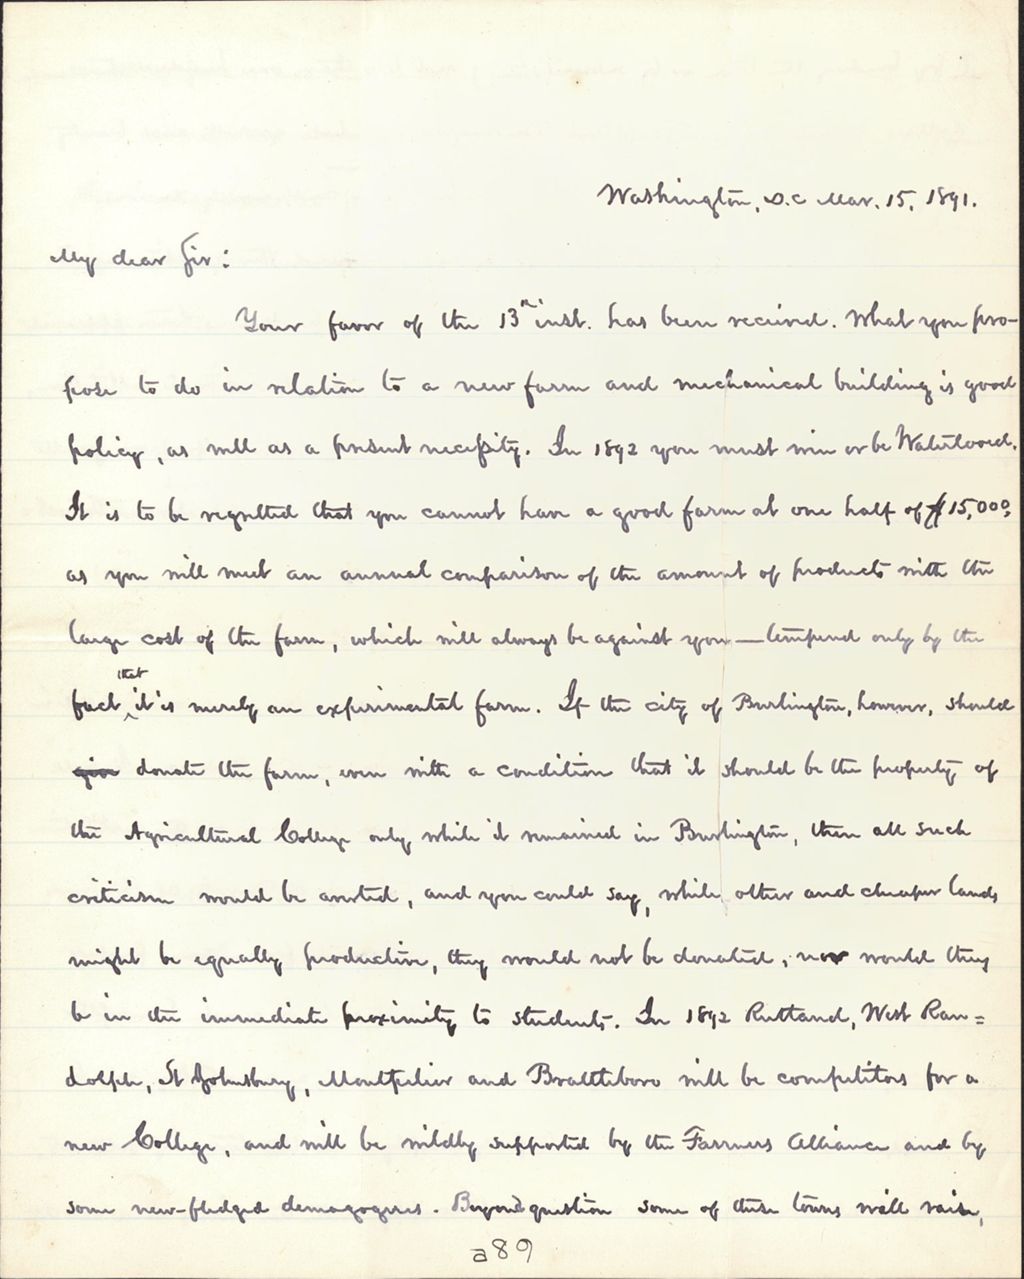 Washington, D.C. Mar. 15, 1891.
My dear Sir:
Your favor of the 13th inst. has been received. What you pro-
pose to do in relation to a new farm and mechanical building is good
policy, as well as a present necessity. In 1892 you must win or be Waterlooed.
It is to be regretted that you cannot have a good farm at one half of $15,000,
as you will meet an annual comparison of the amount of products with the
large cost of the farm, which will always be against you — tempered only by the
fact that it is merely an experimental farm. If the city of Burlington, however, should
give donate the farm, even with a condition that it should be the property of
the Agricultural College only while it remained in Burlington, then all such
criticism would be averted, and you could say, while other and cheaper lands
might be equally productive, they would not be donated, nor would they
be in the immediate proximity to students. In 1892 Rutland, West Ran=
dolph, St Johnsbury, Montpelier and Brattleboro will be competitors for a
new College, and will be wildly supported by the Farmers Alliance and by
some new-fledged demagogues. Beyond question some of these towns will raise,
a89